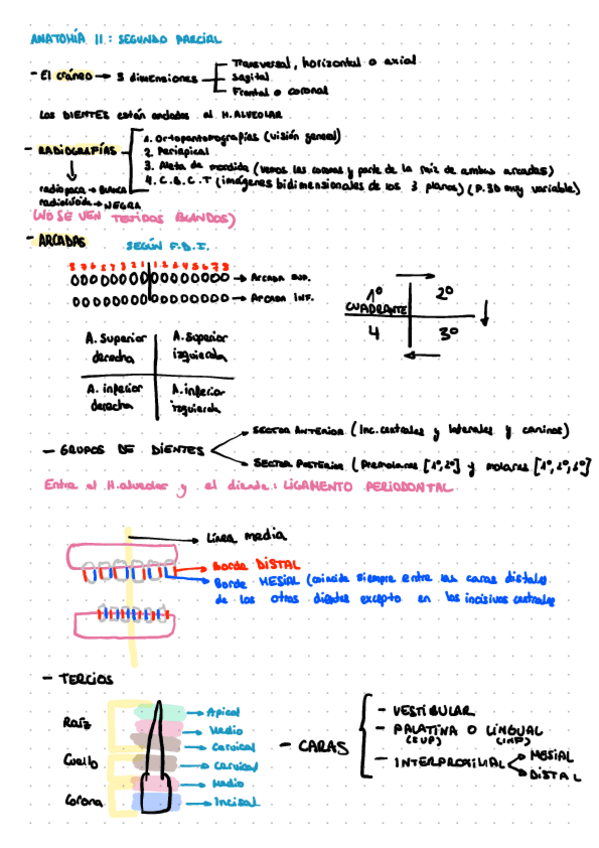 ANATOMÍA II: SEGUNDO PARCIAL
- El cráneo → 3 dimensiones
Transversal, horizontal o axial
Sagital
Frontal o coronal
Los DIENTES están anclados al H.ALVEOLAR
- RADIOGRAFÍAS
1. Ortopantomografías (visión general)
2. Periapical
3. Aleta de mordida (vemos las coronas y parte de la raiz de ambas arcadas)
4. C.B.C.T (imágenes bidimensionales de los 3 planos) (P.3D muy variable)
radiopaca → BLANCA
radiolúcida → NEGRA
(NO SE VEN TEJIDOS BLANDOS)
- ARCADAS
SEGÚN F.D.I.
8 7 6 5 4 3 2 1 1 2 3 4 5 6 7 8
→ ARCADA SUP.
→ ARCADA INF.
1º 2º
CUADRANTE
4 3º
A. Superior derecha
A. Superior izquierda
A. inferior derecha
A. inferior izquierda
- GRUPOS DE DIENTES
SECTOR ANTERIOR (Inc. centrales y laterales y caninos)
SECTOR POSTERIOR (Premolares [1º, 2º] y molares
Entre el H.alveolar y el diente: LIGAMENTO PERIODONTAL
→ Línea media
→ Borde DISTAL
→ Borde MESIAL (coincide siempre entre las caras distales
de los otros dientes excepto en los incisivos centrales
- TERCIOS
Raíz
Cuello
Corona
→ Apical
→ Medio
→ Cervical
→ Cervical
→ Medio
→ Incisal
- CARAS
- VESTIBULAR
- PALATINA O LINGUAL
(SUP) (INF)
- INTERPROXIMAL
MESIAL
DISTAL